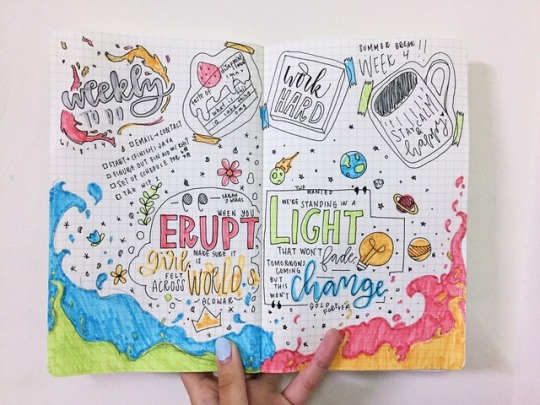 weekly
TO DO
□ EMAIL + CONTACT
□ START + (FINISH)
□ FIGURE OUT
□ SET UP SCHEDULE
SARAH
J MAAS
WHEN YOU
ERUPT
MAKE SURE IT
IS
girl
FELT
ACROSS
WORLDS
ACOWAR
work
HARD
SUMMER BREAK
WEEK 4
STAY CALM
&
happy
THE WANTED
WE'RE STANDING IN A
LIGHT
THAT WON'T fade
TOMORROW'S
COMING
BUT
THIS
WON'T
change
GOLD
FOREVER